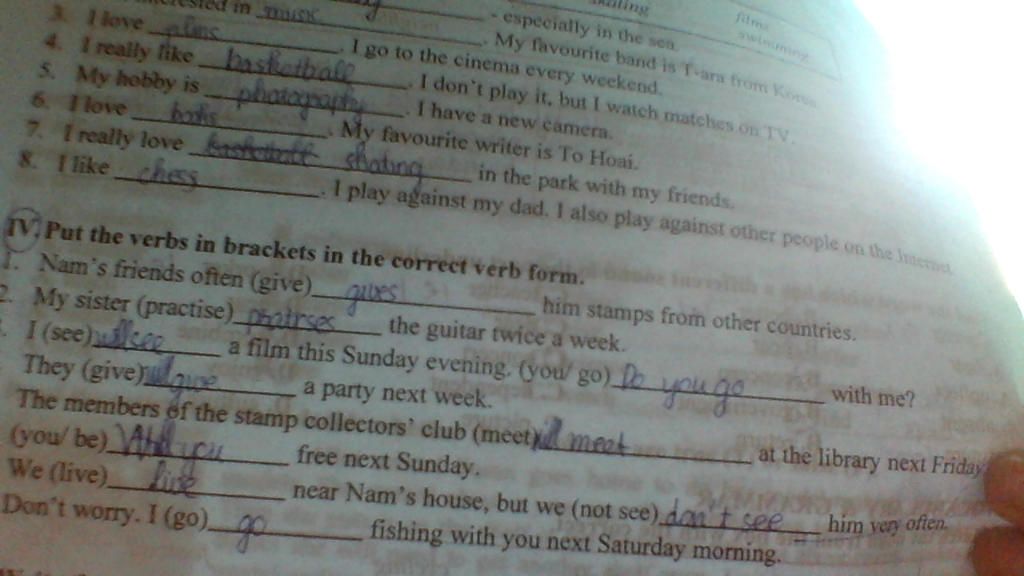 skating films
swimming
especially in the sea.
interested in music. My favourite band is T-ara from Korea.
3. I love films. I go to the cinema every weekend.
4. I really like basketball. I don't play it, but I watch matches on TV.
5. My hobby is photography. I have a new camera.
6. I love. My favourite writer is To Hoai.
7. I really love basketball skating in the park with my friends.
8. I like chess. I play against my dad. I also play against other people on the Internet.
IV. Put the verbs in brackets in the correct verb form.
1. Nam's friends often (give) gives him stamps from other countries.
2. My sister (practise) the guitar twice a week.
I (see) will see a film this Sunday evening. (you/ go) Do you go with me?
They (give) will give a party next week.
The members of the stamp collectors' club (meet) will meet at the library next Friday
(you/ be) Will you free next Sunday.
We (live) live near Nam's house, but we (not see) don't see him very often.
Don't worry. I (go) go fishing with you next Saturday morning.